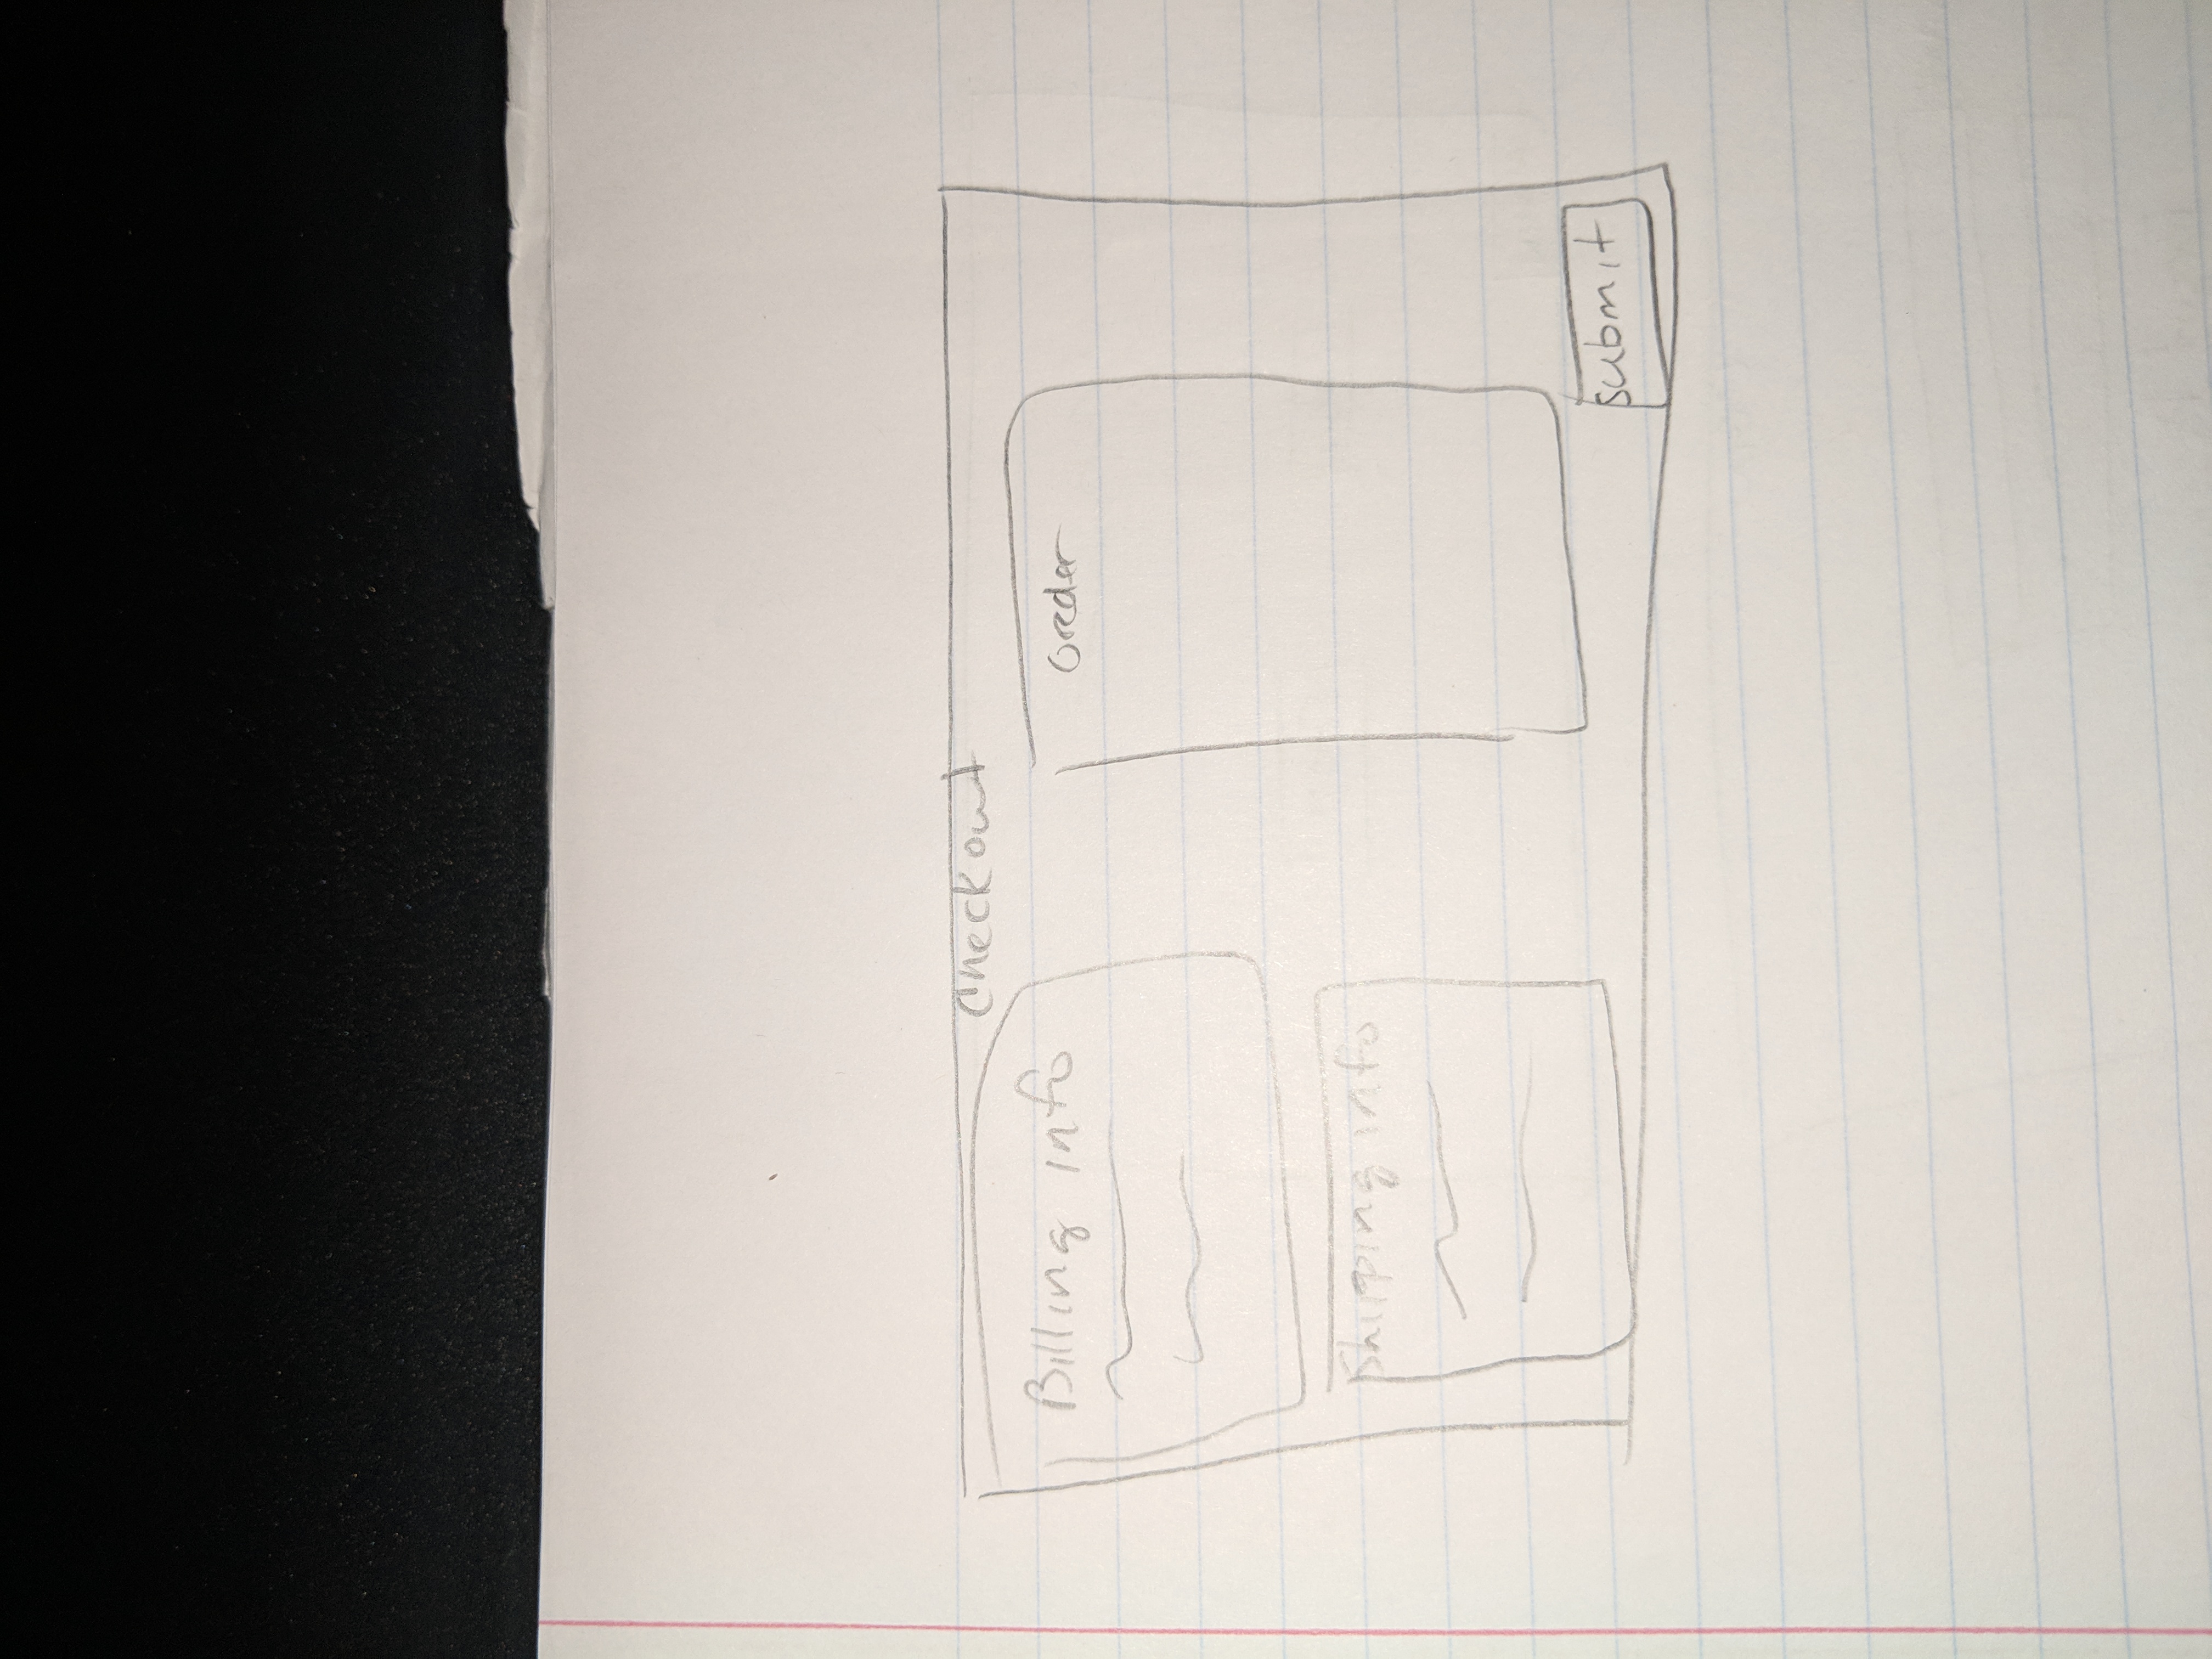 Checkout
Billing Info
Shipping info
Order
Submit